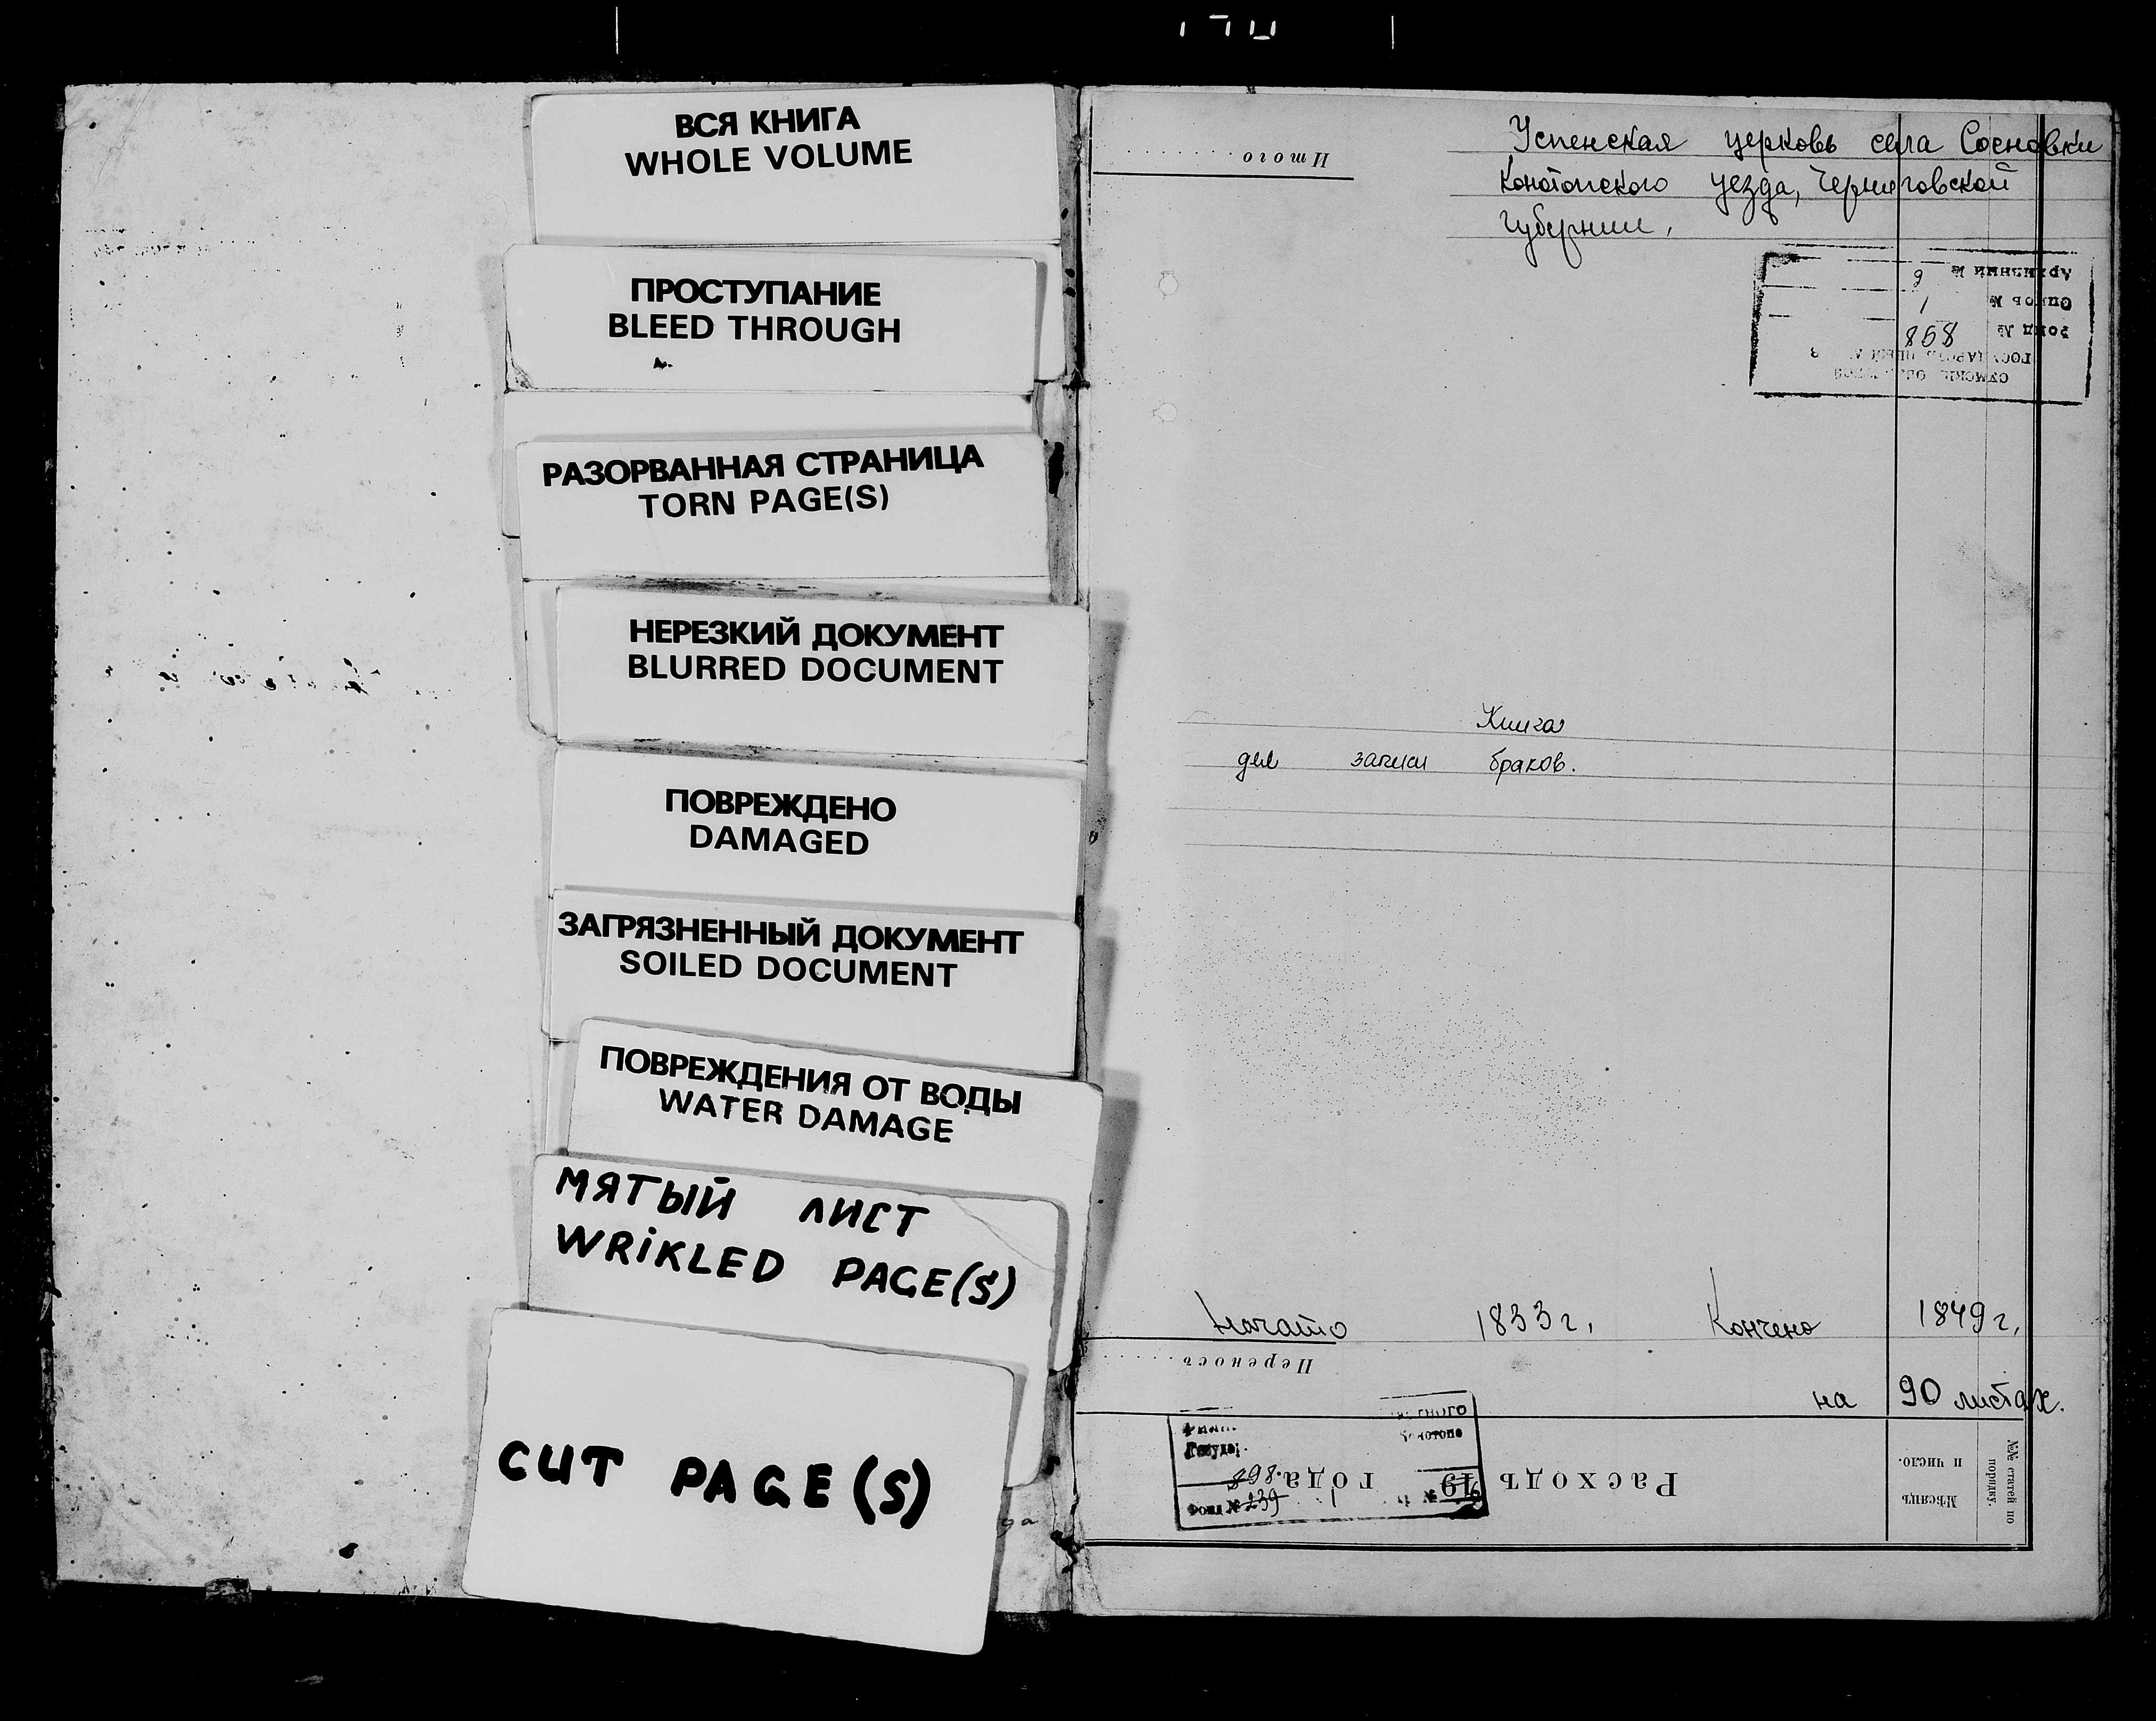 ВСЯ КНИГА
WHOLE VOLUME
ПРОСТУПАНИЕ
BLEED THROUGH
РАЗОРВАННАЯ СТРАНИЦА
TORN PAGE(S)
НЕРЕЗКИЙ ДОКУМЕНТ
BLURRED DOCUMENT
ПОВРЕЖДЕНО
DAMAGED
ЗАГРЯЗНЕННЫЙ ДОКУМЕНТ
SOILED DOCUMENT
ПОВРЕЖДЕНИЯ ОТ ВОДЫ
WATER DAMAGE
МЯТЫЙ ЛИСТ
WRiKLED PAGE(S)
CUT PAGE(S)
Итого
Успенская церковь села Сосновки
Конотопского уезда, Черниговской
губернии,
Архивный №
Опись № 1
Фонд № 868
Книга
для записи браков.
Начато 1833г, Кончено 1849г,
Переносъ
на 90 листах.
898.
Фонд № 239
Расходъ 19 года
Мѣсяцъ
и число.
№№ статей по
порядку.